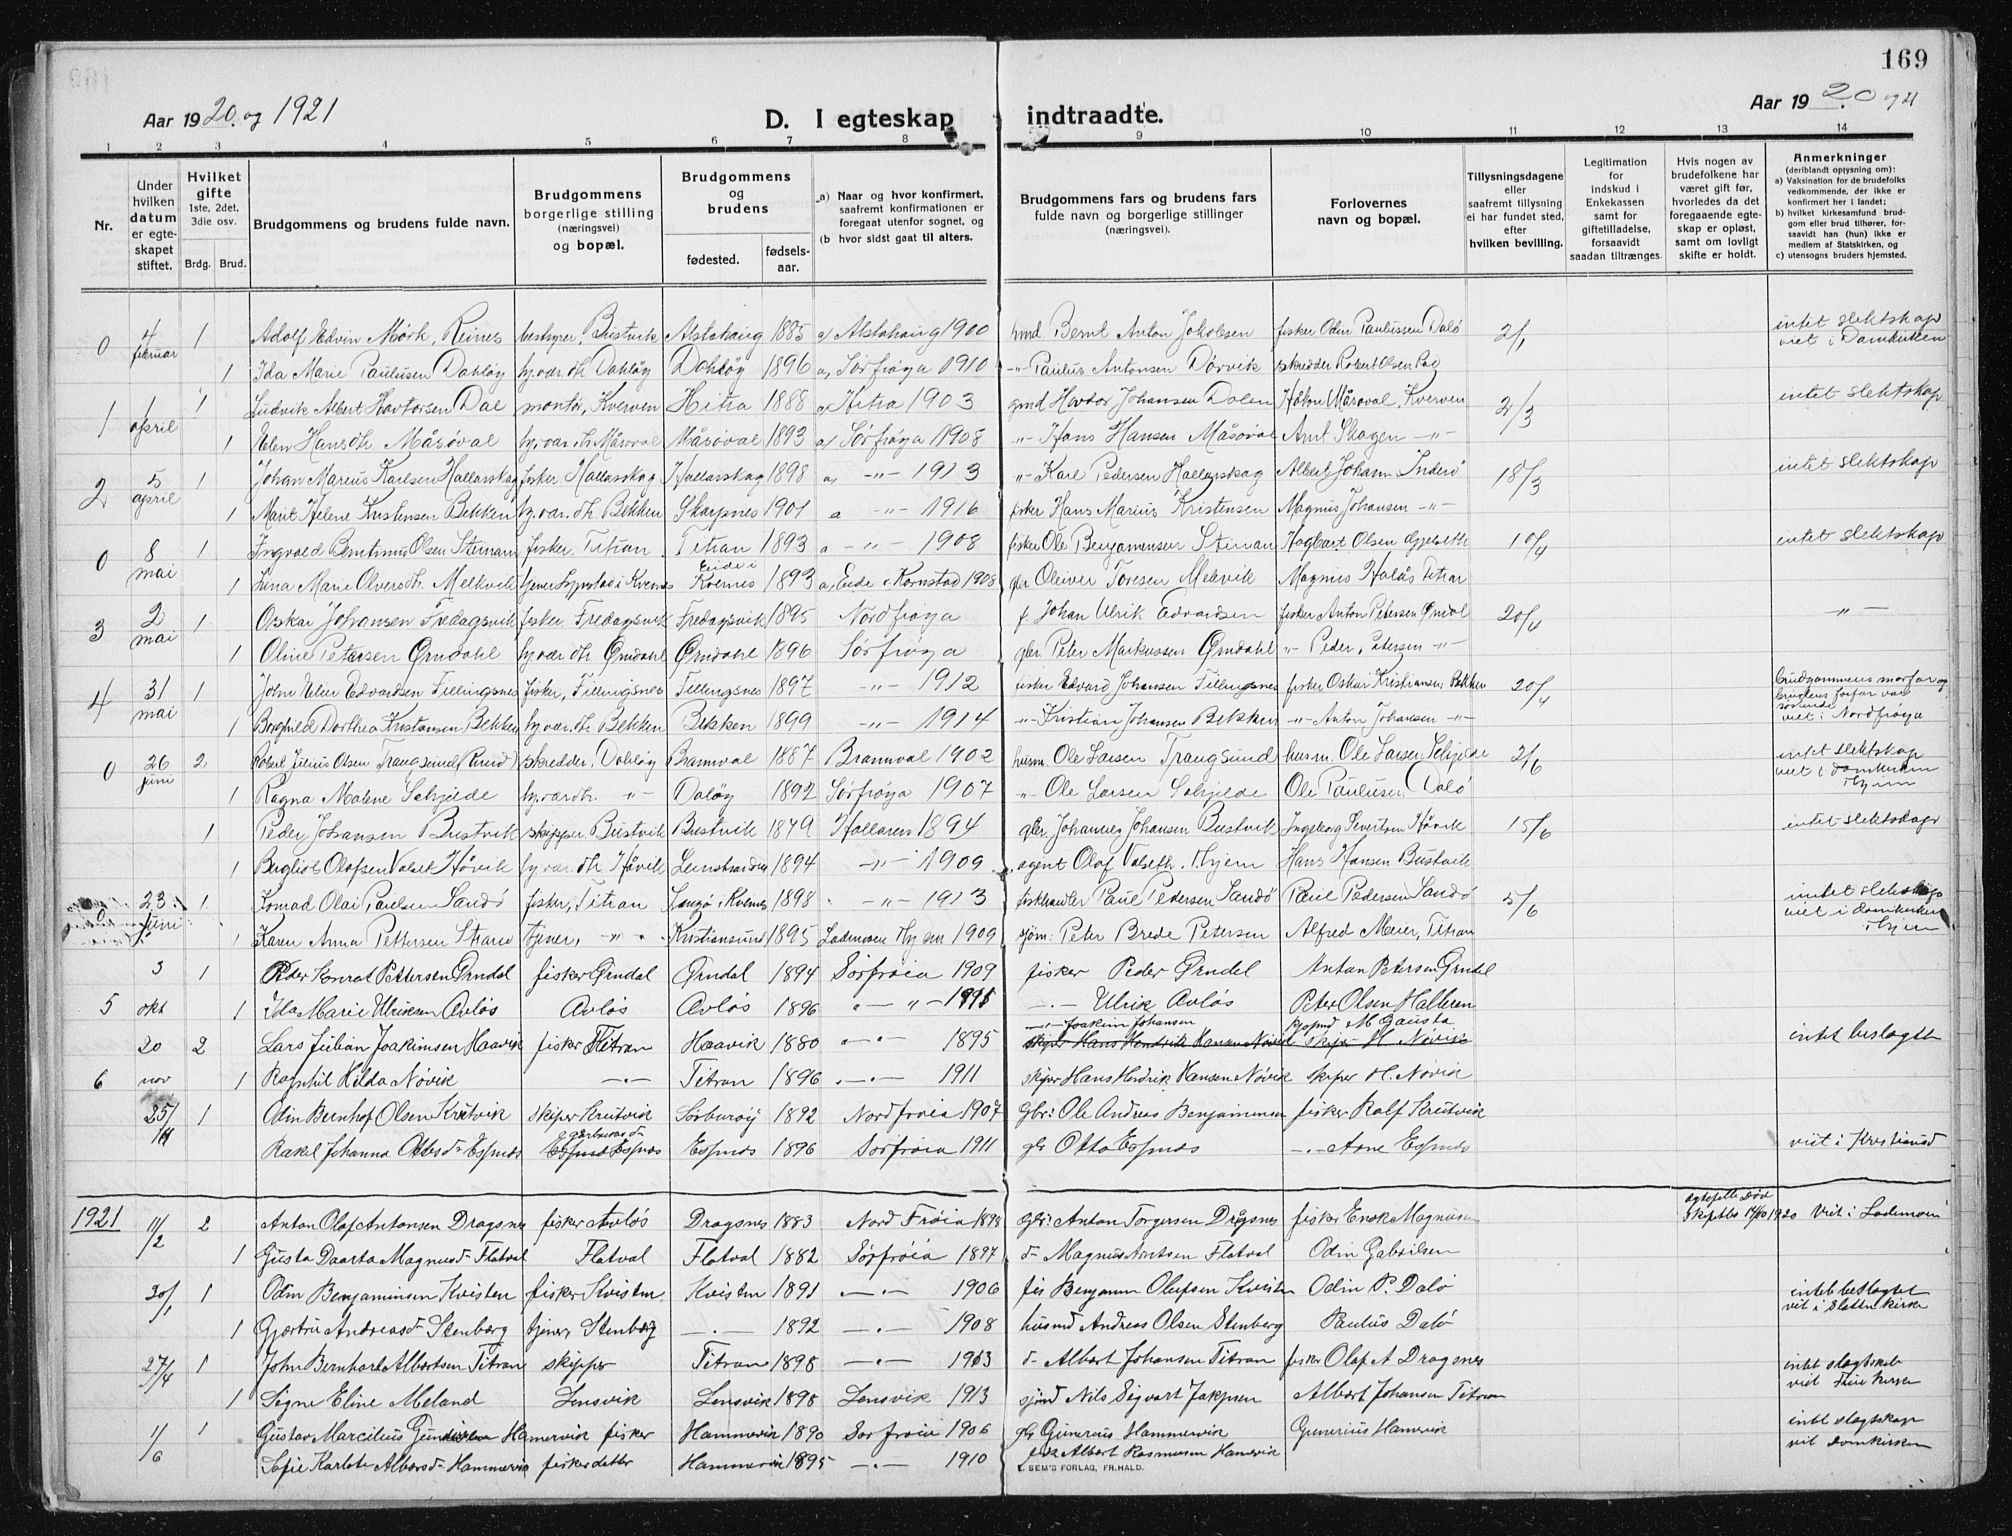 169
Aar 1920. og 1921
D. I egteskap indtraadte.
Aar 1920 og 21
1 2 3 4 5 6 7 8 9 10 11 12 13 14
Nr.
Under hvilken datum er egteskapet stiftet.
Hvilket gifte 1ste, 2det, 3die osv.
Brdg. Brud.
Brudgommens og brudens fulde navn.
Brudgommens borgerlige stilling (næringsvei) og bopæl.
Brudgommens og brudens
fødested.
fødselsaar.
a) Naar og hvor konfirmert, saafremt konfirmationen er foregaat utenfor sognet, og
(b hvor sidst gaat til alters.
Brudgommens fars og brudens fars fulde navn og borgerlige stillinger (næringsvei).
Forlovernes navn og bopæl.
Tillysningsdagene eller saafremt tillysning ei har fundet sted, efter hvilken bevilling.
Legitimation for indskud i Enkekassen samt for giftetilladelse, forsaavidt saadan tiltrænges.
Hvis nogen av brudefolkene har været gift før, hvorledes da det foregaaende egteskap er opløst, samt om lovligt skifte er holdt.
Anmerkninger (deriblandt oplysning om):
a) Vaksination for de brudefolks vedkommende, der ikke er konfirmert her i landet;
b) hvilket kirkesamfund brudgom eller brud tilhører, forsaavidt han (hun) ikke er medlem af Statskirken, og
c) utensogns bruders hjemsted.
0 4 februar 1 Adolf Edvin Mørk, Reines bestyrer, Bustvik Alstahaug 1885 a) Alstahaug 1900 hmd Bernt Anton Jakobsen fisker Odin Paulussen Dalø 2/1 intet slektskap viet i Domkirken
1 Ida Marie Paulusen Dahløy hy.vær. dt. Dahløy Dahløy 1896 a, Sørfrøya 1910 -"- Paulus Antonsen Dørvik skredder Robert Olsen
1 1 april 1 Ludvik Albert Havtorsen Dal montør, Kverven Hitra 1888 a, Hitra 1903 gmd Havdor Johansen Dalen Håkon Måsøval, Kverven 2/3 intet slektskap
1 Elen Hansdtr. Måsøval hy.vær. dt. Måsøval Måsøval 1893 a/ Sørfrøya 1908 -"- Hans Hansen Måsøval Arnt Skagen -"-
2 5 april 1 Johan Marius Karlsen Hallarskag fisker Hallarskag Hallarskag 1898 a, -"- 1913 -"- Karl Pedersen Hallarskag Albert Johan Inderø 18/3 intet slektskap
1 Marit Helene Kristensen Bekken hy.vær. dt. Bekken Skarpnes 1901 a -"- 1916 fisker Hans Marius Kristensen Magnus Johansen -"-
0 8 mai 1 Ingvald Berntinus Olsen Stenan fisker. Titran Titran 1893 a -"- 1908 fisker Ole Benjamensen Stenan Hagbart Olsen Gjelseth 10/4 intet slektskap
1 Lina Marie Oliversdt. Melkvik tjener i Kvernes Eide i Kvernes 1893 a, Eide i Kornstad 1908 gbr Oliver Toresen Melkvik Magnus Halås Titran
3 2 mai 1 Oskar Johansen Fredagsvik fisker Fredagsvik Fredagsvik 1895 Nordfrøya f. Johan Ulrik Edvardsen fisker Anton Petersen Ørndal 20/4 -"-
1 Oline Petersen Ørndahl hy.vær. dt. Ørndahl Ørndahl 1896 Sørfrøya gbr. Peter Markussen Ørndahl -"- Peder Petersen -"-
4 31 mai 1 John Elier Edvardsen Fillingsnes fisker, Fillingsnes Fillingsnes 1897 -"- 1912 fisker Edvard Johansen Fillingsnes fisker Oskar Kristiansen Bekken 20/4 brudgommens morfar og brudens farfar var søskende viet i Nordfrøya
1 Borghild Dorthea Kristiansen Bekken hy.vær. dt. Bekken Bekken 1899 -"- 1914 -"- Kristian Johansen Bekken -"- Anton Johansen -"-
0 26 juni 2 Robert Julius Olsen Trangsund skredder, Dahløy Bramval 1887 Bramval 1902 husm. Ole Larsen Trangsund husm. Ole Larsen Selvjelde 2/6 intet slektskap viet i domkirken Thjem
1 Ragna Malene Selvjelde hy.vær dt. -"- Daløy 1892 Sørfrøya 1907 -"- Ole Larsen Selvjelde Ole Paulusen Dalø
1 Peder Johansen Bustvik skipper Bustvik Bustvik 1879 Hallaren 1894 gbr. Johannes Johansen Bustvik Ingeborg Sevrtsen Håvik 15/6 intet slektskap
1 Bergliot Olafsen Valset Håvik hy.vær. dt. Håvik Leinstranden 1894 -"- 1909 agent Olaf Valseth. Thjem Hans Hansen Bustvik
0 23 juni 1 Konrad Olai Paulsen Sandø fisker, Titran i Kvernes 1898 -"- 1913 fiskhandler Paul Pedersen Sandø Paul Pedersen Sandø 5/6 intet slektskap viet i domkirken Thjem
1 Karen Anna Pettersen tjener, -"- Kristiansund 1895 Lademoen Thjem 1909 sjøm. Peter Brede Petersen Alfred Meier, Titran
5 3 okt 1 Peder Konrat Pettersen Ørndal fisker Ørndal Ørndal 1894 Sørfrøia 1909 fisker Peder Ørndal Anton Petersen Ørndal
1 Ida Marie Ulriksen Avløs Avløs Avløs 1896 " - " - 1911 -.- Ulrik Avløs Peter Olsen Hallaren
6 20 nov 2 Lars Julian Joakimsen Haavik fisker Titran Haavik 1880 -"- 1895 -"- Joakim Johansen skiper Hans Hendrik Hansen Nøvik M. Gausta skiper H. Nøvik intet beslagtet
1 Ragnhil Hilda Nøvik -.- Titran 1896 -.- 1911 skiper Hans Hendrik Hansen Nøvik skiper H. Nøvik
25/11 1 Odin Bernhof Olsen Kretvik skiper Kretvik Sørburøy 1892 Nordfrøia 1907 gbr: Ole Andreas Benjaminsen fisker Ralf Kretvik
Rakel Johanna Ottesdr Espnes Espnes Espnes 1896 Sørfrøia 1911 gbr Otto Espnes -.- Arne Espnes viet i Kristiansd
1921 11/2 2 Anton Olaf Antonsen Dragsnes fisker Avløs Dragsnes 1883 Nord Frøia 1898 gbr: Anton Torgersen Dragsnes fisker Enok Magnusen egtefelle død skiftet 1920 Viet i Lademoen
1 Gusta Daarta Magnusdr Flatval Flatval Flatval 1882 Sørfrøia 1897 dr Magnus Arntsen Flatval Odin Gabrilsen
20/1 1 Odin Benjaminsen Kvisten fisker Kvisten Kvisten 1891 -.- 1906 fis Benjamin Olufsen Kvisten Odin P. Dalø intet beslagtet viet i Sletten kirke
1 Gjertru Andreasdr Stenberg tjener Stenberg -.- 1892 -.- 1908 husmd Andreas Olsen Stenberg Paulus Dalø
27/4 1 John Bernhard Albertsen Titran skipper Titran 1898 -.- 1913 dr Albert Johansen Titran fisker Olaf A Dragsnes intet slagtskab viet Ilue kirke
1 Signe Eline Meland Lensvik Lensvik 1898 Lensvik 1913 sjmd Nils Sigvart Jakopsen Albert Johansen Titran
11/6 1 Gustav Marcilius Hamervik fisker Hammervik 1890 Sørfrøia 1906 gbr Gunerius Hammervik Gunerius Hamervik intet slagtskap viet domkirken
Sofie Karlote Albersdr Hammervik fiskerdatter Hammervik 1895 -.- 1910 fisk Albert Rasmussen Hamervik
E. SEM'S FORLAG, FR.HALD.